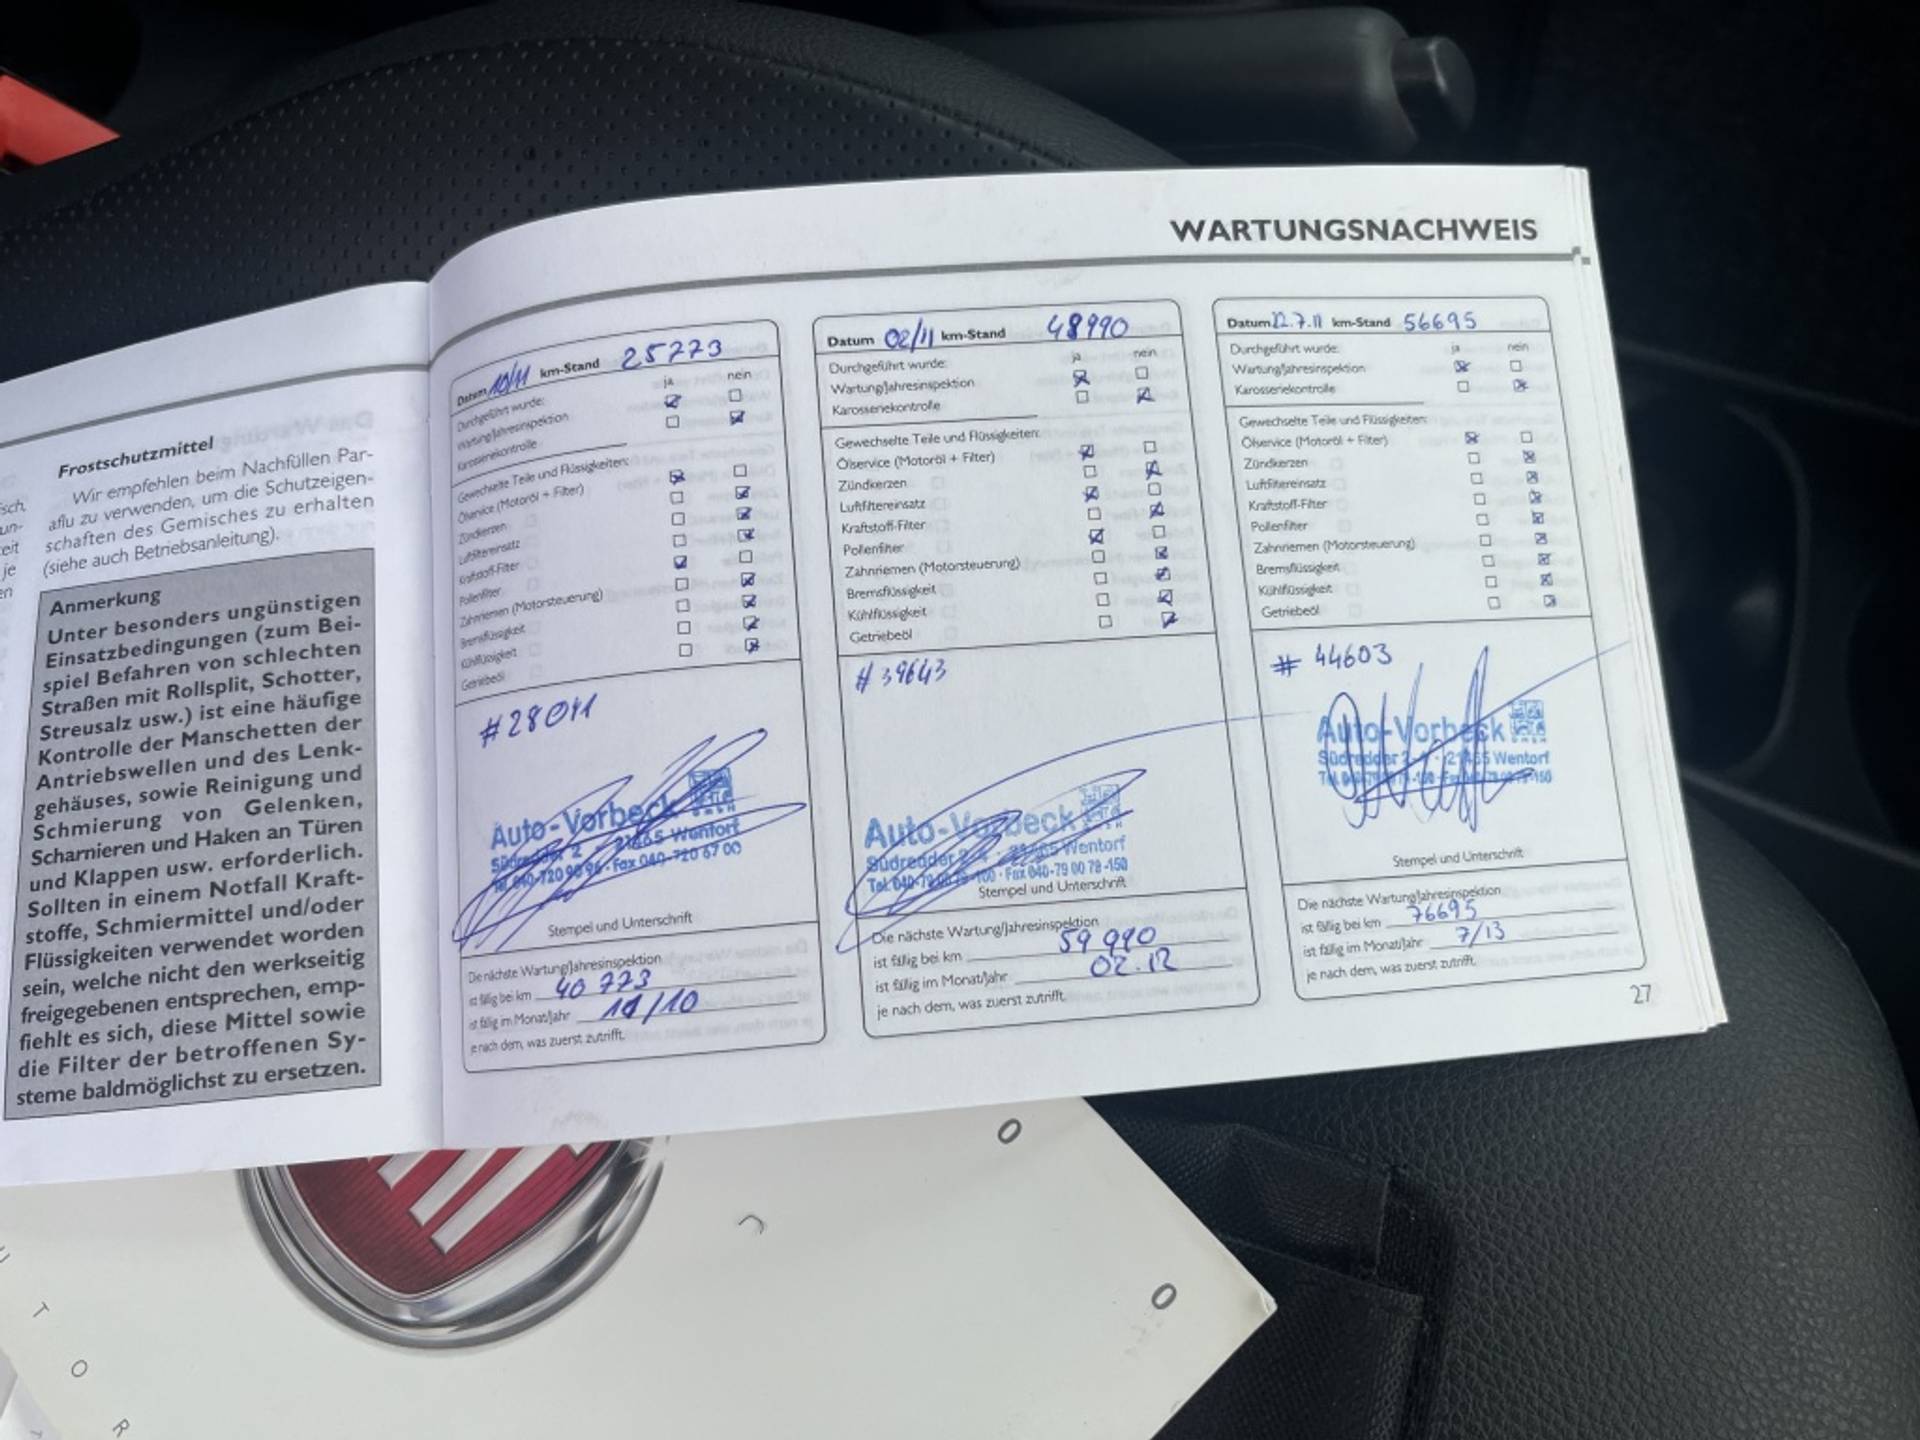 WARTUNGSNACHWEIS
Frostschutzmittel
Wir empfehlen beim Nachfüllen Par-
aflu zu verwenden, um die Schutzeigen-
schaften des Gemisches zu erhalten
(siehe auch Betriebsanleitung).
Anmerkung
Unter besonders ungünstigen
Einsatzbedingungen (zum Bei-
spiel Befahren von schlechten
Straßen mit Rollsplit, Schotter,
Streusalz usw.) ist eine häufige
Kontrolle der Manschetten der
Antriebswellen und des Lenk-
gehäuses, sowie Reinigung und
Schmierung von Gelenken,
Scharnieren und Haken an Türen
und Klappen usw. erforderlich.
Sollten in einem Notfall Kraft-
stoffe, Schmiermittel und/oder
Flüssigkeiten verwendet worden
sein, welche nicht den werkseitig
freigegebenen entsprechen, emp-
fiehlt es sich, diese Mittel sowie
die Filter der betroffenen Sy-
steme baldmöglichst zu ersetzen.
Datum 10/11 km-Stand 25773
Durchgeführt wurde: ja nein
Wartung/Jahresinspektion
Karosseriekontrolle
Gewechselte Teile und Flüssigkeiten:
Ölservice (Motoröl + Filter)
Zündkerzen
Luftfiltereinsatz
Kraftstoff-Filter
Pollenfilter
Zahnriemen (Motorsteuerung)
Bremsflüssigkeit
Kühlflüssigkeit
Getriebeöl
#28041
Auto-Vorbeck
Südredder 2 · 21465 Wentorf
Tel. 040-720 90 96 · Fax 040-720 67 00
Stempel und Unterschrift
Die nächste Wartung/Jahresinspektion
ist fällig bei km 40 773
ist fällig im Monat/Jahr 11/10
je nach dem, was zuerst zutrifft.
Datum 02/11 km-Stand 48990
Durchgeführt wurde: ja nein
Wartung/Jahresinspektion
Karosseriekontrolle
Gewechselte Teile und Flüssigkeiten:
Ölservice (Motoröl + Filter)
Zündkerzen
Luftfiltereinsatz
Kraftstoff-Filter
Pollenfilter
Zahnriemen (Motorsteuerung)
Bremsflüssigkeit
Kühlflüssigkeit
Getriebeöl
#39643
Auto-Vorbeck
Südredder 2-4 · 21465 Wentorf
Tel. 040-79 00 79-100 · Fax 040-79 00 79-150
Stempel und Unterschrift
Die nächste Wartung/Jahresinspektion
ist fällig bei km 59 990
ist fällig im Monat/Jahr 02.12
je nach dem, was zuerst zutrifft.
Datum 22.7.11 km-Stand 56695
Durchgeführt wurde: ja nein
Wartung/Jahresinspektion
Karosseriekontrolle
Gewechselte Teile und Flüssigkeiten:
Ölservice (Motoröl + Filter)
Zündkerzen
Luftfiltereinsatz
Kraftstoff-Filter
Pollenfilter
Zahnriemen (Motorsteuerung)
Bremsflüssigkeit
Kühlflüssigkeit
Getriebeöl
# 44603
Auto-Vorbeck
Südredder 2-4 · 21465 Wentorf
Tel. 040-79 00 79-100 · Fax 040-79 00 79-150
Stempel und Unterschrift
Die nächste Wartung/Jahresinspektion
ist fällig bei km 76695
ist fällig im Monat/Jahr 7/13
je nach dem, was zuerst zutrifft.
27